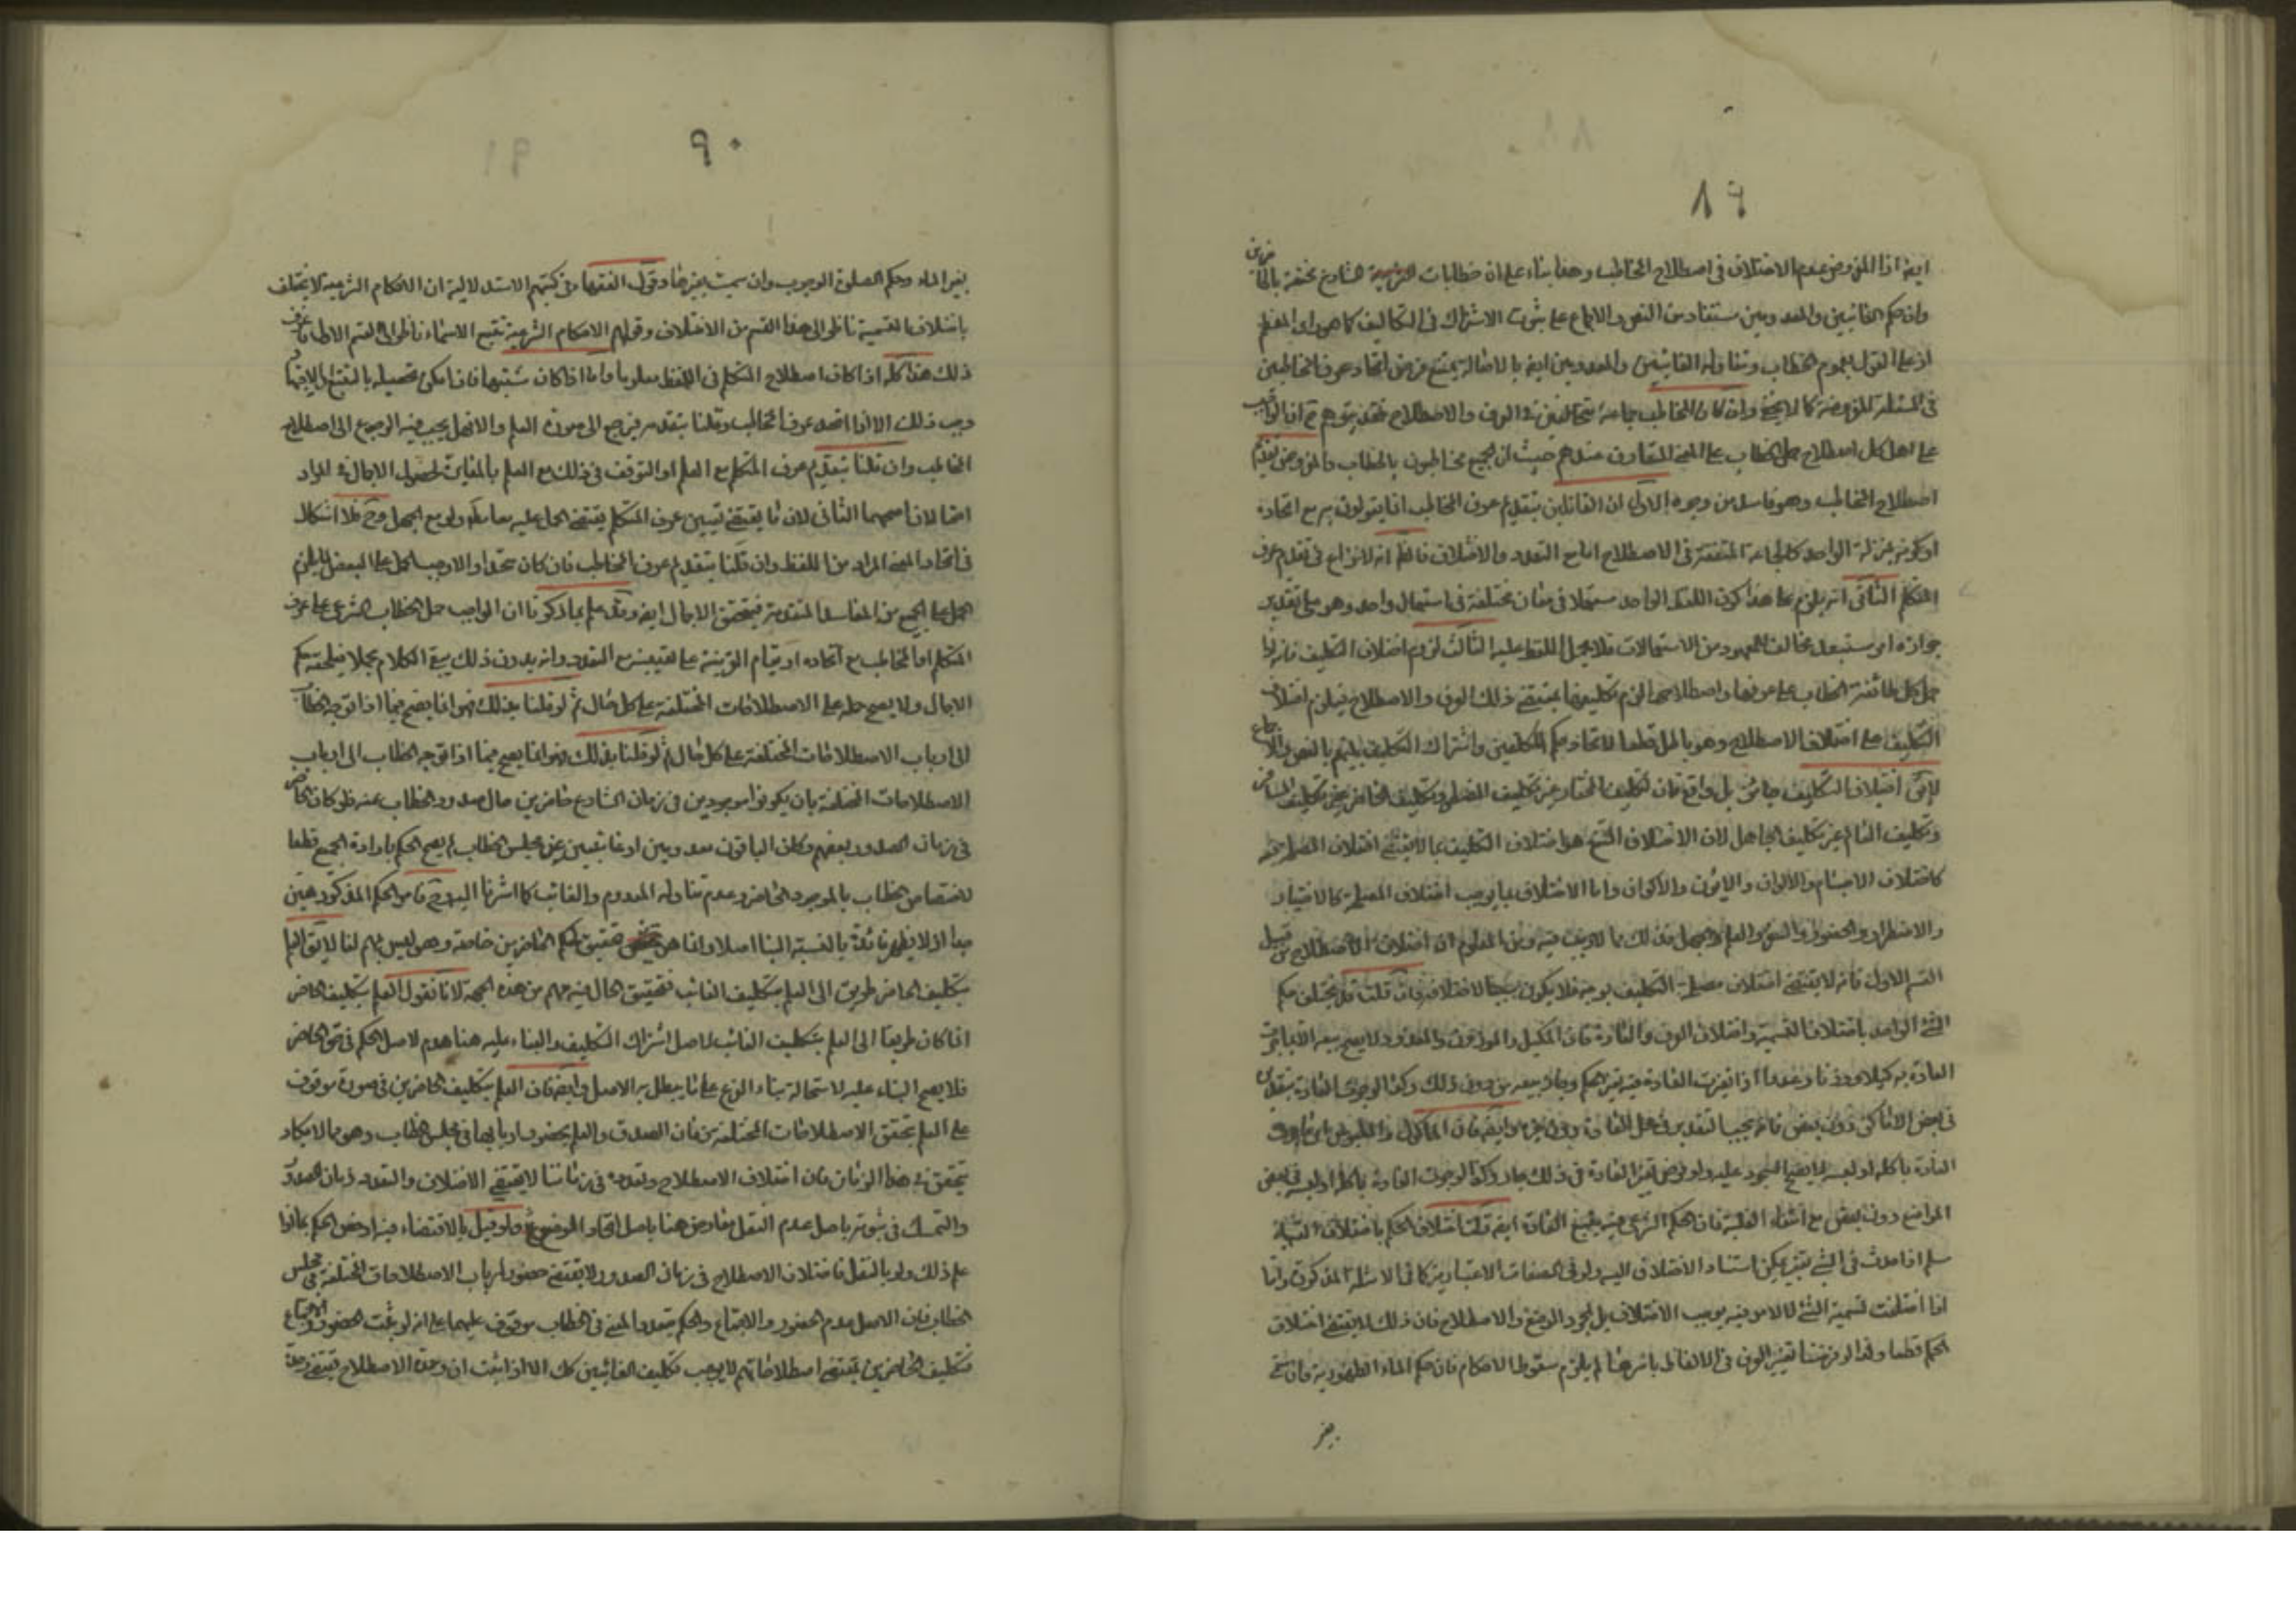 ٨٩
ايضا اذ المفروض عدم الاختلاف في اصطلاح المخاطب وهذا بناء على ان خطابات الشارع مختصة بالحاضرين
وان حكم الغائبين والمعدومين مستفاد من النص والاجماع على ثبوت الاشتراك في التكاليف كما هو راى المعظم
اذ على القول بعموم الخطاب وتناوله الغائبين والمعدومين ايضا بالاصالة يمتنع فرض اتحاد عرف المخاطبين
في المسئلة المفروضة كما لا يخفى وان كان المخاطب جماعة متخالفين في العرف والاصطلاح فقد يتوهم ح ان الواجب
على اهل كل اصطلاح حمل الخطاب على المعنى المتعارف عندهم حيث ان الجميع مخاطبون بالخطاب والمفروض تقديم
اصطلاح المخاطب وهو فاسد من وجوه الاول ان القائلين بتقديم عرف المخاطب انما يقولون به مع اتحاده
او كونه بمنزلة الواحد كالجماعة المتفقة في الاصطلاح اما مع التعدد والاختلاف فالظ انه لا نزاع في تقديم عرف
المتكلم الثاني انه يلزم على هذا كون اللفظ الواحد مستعملا في معان مختلفة في استعمال واحد وهو على تقدير
جوازه امر مستبعد مخالف للمعهود من الاستعمالات فلا يحمل اللفظ عليه الثالث لزوم اختلاف التكليف فانه اذا
حمل كل طائفة الخطاب على عرفها واصطلاحها لزم تكليفها بمقتضى ذلك العرف والاصطلاح فيلزم اختلاف
التكليف على اختلاف الاصطلاح وهو باطل قطعا لاتحاد حكم المكلفين واشتراك التكليف بينهم بالنص والاجماع
لا يق اختلاف التكليف جائز بل واقع فان تكليف المختار غير تكليف المضطر وتكليف الحاضر غير تكليف المسافر
وتكليف العالم غير تكليف الجاهل لان الاختلاف الممتنع هو اختلاف التكليف بما لا يقتضى اختلاف المصلحة
كاختلاف الاجسام والالوان والاكوان واما الاختلاف بما يوجب اختلاف المصلحة كالاختيار
والاضطرار والحضور والسفر والعلم والجهل فذلك مما لا ريب فيه ومن المعلوم ان اختلاف الاصطلاح من قبيل
القسم الاول فانه لا يقتضى اختلاف مصلحة التكليف بوجه فلا يكون موجبا لاختلافه فان قلت قد يختلف حكم
الشئ الواحد باختلاف التسمية واختلاف العرف والعادة فان المكيل والموزون والمعدود لا يصح بيعه الا بما جرت
العادة به كيلا ووزنا وعددا اذا تغيرت العادة فيه تغير الحكم وجاز بيعه من دون ذلك وكذا لو جرى العادة بتقديره
في بعض الاماكن دون بعض فانه يجب التقدير في محل العادة دون غيره وايضا فان الماكول والملبوس
العادة باكله او لبسه لا يصح السجود عليه ولو فرض تغير العادة في ذلك جاز وكذا لو جرت العادة باكله او لبسه في بعض
المواضع دون بعض مع انتفاء الغلبة فان الحكم الشرعى فيه يتبع العادة ايضا قلت اختلاف الحكم باختلاف التسمية
مسلم اذا حدث في الشئ تغير يمكن استناد الاختلاف اليه ولو في الصفات الاعتبارية كما في الامثلة المذكورة واما
اذا اختلفت تسمية الشئ لا لامر فيه يوجب الاختلاف بل لمجرد الوضع والاصطلاح فان ذلك لا يقتضى اختلاف
الحكم قطعا ولذا لو فرضنا تغيير العرف في الالفاظ باسرها لم يلزم سقوط الاحكام فان حكم الماء الطهورية وان سمى
بغير
٩٠
بغير الماء وحكم الصلوة الوجوب وان سميت بغيرها وقول الفقهاء في كتبهم الاستدلالية ان الاحكام الشرعية لا يختلف
باختلاف التسمية ناظر الى هذا القسم من الاختلاف وقولهم الاحكام الشرعية تتبع الاسماء ناظر الى القسم الاخر
ذلك هذا كله اذا كان اصطلاح المتكلم في اللفظ معلوما واما اذا كان مشتبها فان امكن تحصيله بالتتبع والاجتهاد
وجب ذلك الا اذا اتحد عرف المخاطب وقلنا بتقديمه فيرجع الى صورة العلم والا فهل يجب فيه الرجوع الى اصطلاح
المخاطب وان قلنا بتقديم عرف المتكلم مع العلم او التوقف في ذلك مع العلم بالمغايرة لحصول الاجمال في المراد
احتمالان اصحهما الثانى لان ما يقتضى تعيين عرف المتكلم يقتضى الحمل عليه مع العلم ولو مع الجهل وح فلا اشكال
في اتحاد المعنى المراد من اللفظ وان قلنا بتقديم عرف المخاطب فان كان متحدا والا وجب الحمل على البعض لما يلزم
الحمل على الجميع من المفاسد المتقدمة فيتحقق الاجمال ايضا وقد علم بما ذكرنا ان الواجب حمل الخطاب الشرعى على عرف
المتكلم او المخاطب مع اتحاده او قيام القرينة على تعيينه مع التعدد وانه بدون ذلك يبقى الكلام مجملا فيلحقه حكم
الاجمال ولا يصح حمله على الاصطلاحات المختلفة على كل حال ثم لو قلنا بذلك فهو انما يصح فيما اذا توجه الخطاب
الى ارباب الاصطلاحات المختلفة على كل حال ثم لو قلنا بذلك فهو انما يصح فيما اذا توجه الخطاب الى ارباب
الاصطلاحات المختلفة بان يكونوا موجودين في زمان الشارع حاضرين حال صدور الخطاب عنه فلو كان الحاضر
في زمان الصدور بعضهم وكان الباقون معدومين او غائبين عن مجلس الخطاب لم يصح الحكم بارادة الجميع قطعا
لاختصاص الخطاب بالموجود الحاضر وعدم تناوله المعدوم والغائب كما اشرنا اليه وح فامر الحكم المذكور هين
جدا اذ لا يظهر فائدة بالنسبة الينا اصلا وانما هو تحقيق لحكم الحاضرين خاصة وهو ليس بمهم لنا لا يق العلم
بتكليف الحاضر طريق الى العلم بتكليف الغائب فتحقيق الحال فيه مهم من هذه الجهة لانا نقول العلم بتكليف الحاضر
انما كان طريقا الى العلم بتكليف الغائب لاصل اشتراك التكليف والبناء عليه هنا هدم لاصل الحكم في حق الحاضر
فلا يصح البناء عليه لاستحالة بناء الفرع على ما يبطل به الاصل وايضا فان العلم بتكليف الحاضرين في صورة موقوف
على العلم بتحقق الاصطلاحات المختلفة من زمان الصدور والعلم بحضور اربابها في مجلس الخطاب وهو مما لا يكاد
يتحقق في هذا الزمان فان اختلاف الاصطلاح وتعدده في زماننا لا يقتضى الاختلاف والتعدد زمان الصدور
والتمسك في ثبوته باصل عدم النقل معارض هنا باصل اتحاد الموضوع ولو قيل بالاقتضاء فيه او فرض الحكم بما اذا
علم ذلك ولو بالنقل فاختلاف الاصطلاح في زمان الصدور لا يقتضى حضور ارباب الاصطلاحات المختلفة في مجلس
الخطاب فان الاصل عدم الحضور والاجتماع والحكم بتعدد المعنى في الخطاب موقوف عليهما على انه لو ثبت الحضور والاجتماع
فتكليف الحاضرين بمقتضى اصطلاحاتهم لا يوجب تكليف الغائبين كك الا اذا ثبت ان وحدة الاصطلاح تقتضى وحدة